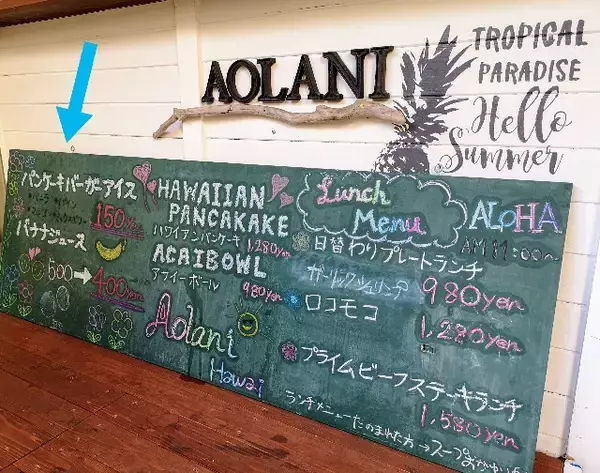 AOLANI
TROPICAL
PARADISE
Hello
Summer
パンケーキバーガーアイス
150yen
バナナジュース
500→400yen
HAWAIIAN
PANCAKAKE
ハワイアンパンケーキ 1,280yen
ACAIBOWL
アサイーボール
980yen
Aolani
Hawai
Lunch
Menu
ALOHA
AM11:00~
日替わりプレートランチ
ガーリックシュリンプ 980yen
ロコモコ
1,280yen
プライムビーフステーキランチ
1,580yen
ランチメニューたのまれた方→スープ